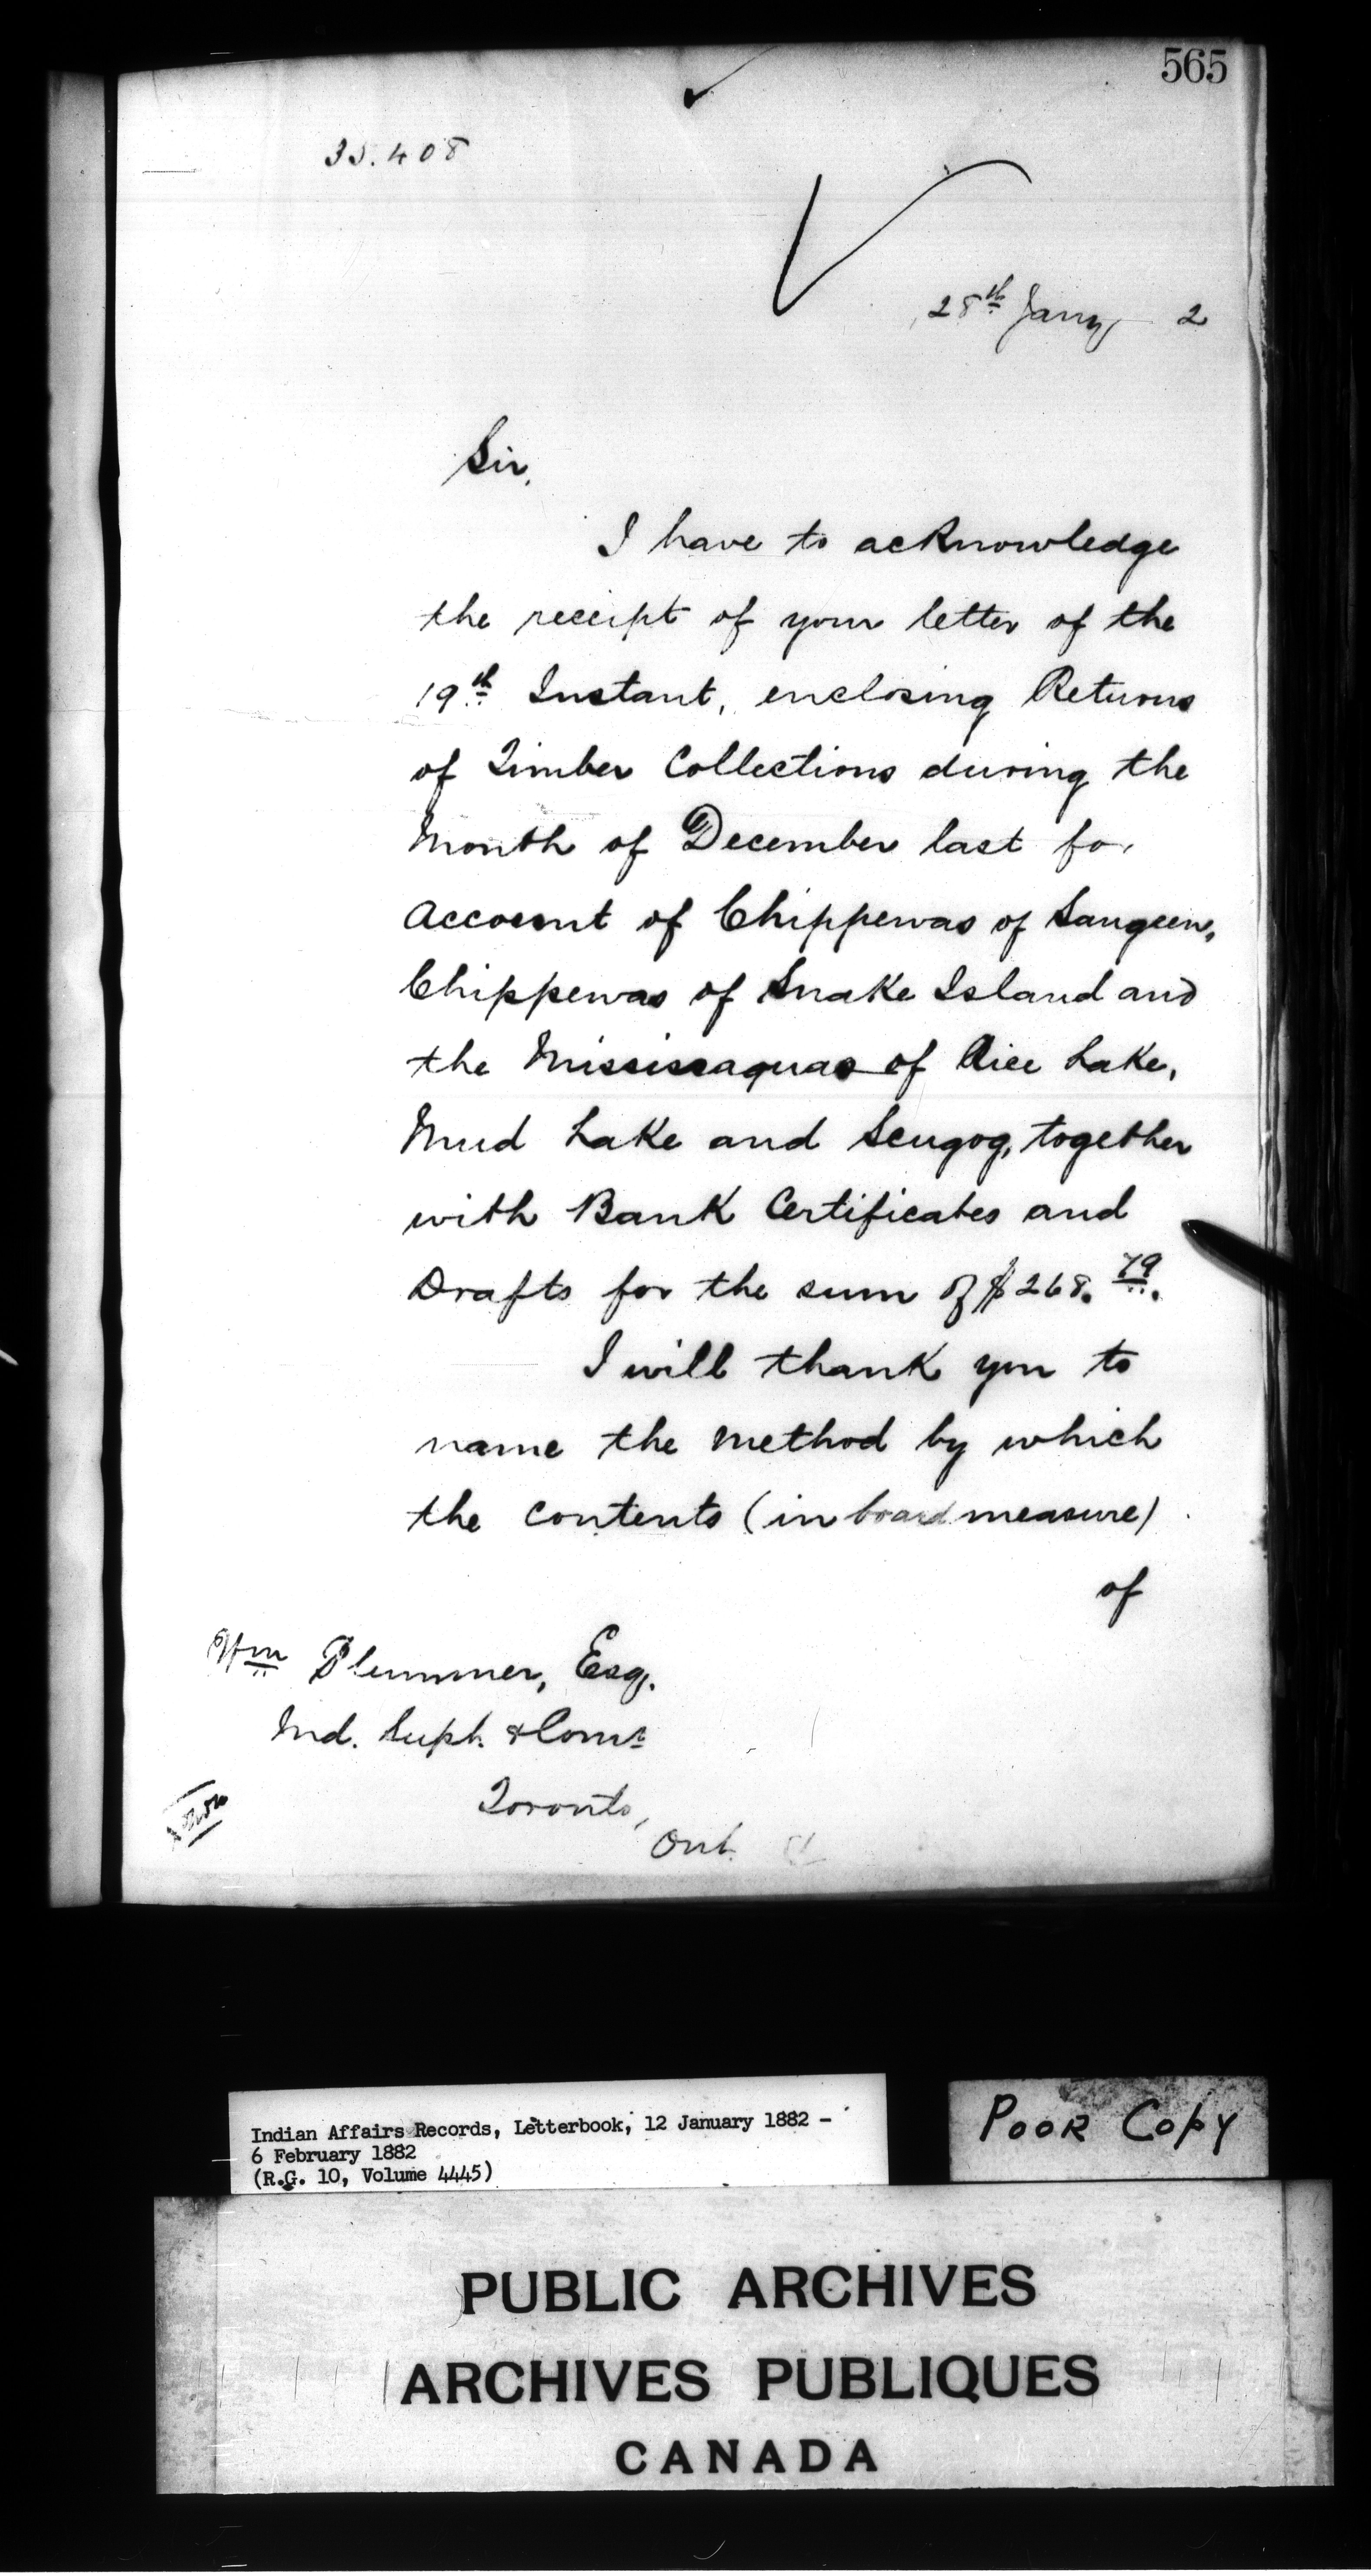 565
35.408
28th Jany 2
Sir,
I have to acknowledge
the receipt of your letter of the
19th Instant, enclosing Returns
of Timber Collections during the
Month of December last for
Account of Chippewas of Saugeen,
Chippewas of Snake Island and
the Mississaguas of Rice Lake,
Mud Lake and Scugog, together
with Bank Certificates and
Drafts for the sum of $268.79.
I will thank you to
name the method by which
the contents (in board measure)
of
Wm Plummer, Esq.
Ind. Supt. & Comr
Toronto,
Ont.
Indian Affairs Records, Letterbook, 12 January 1882 -
6 February 1882
(R.G. 10, Volume 4445)
POOR COPY
PUBLIC ARCHIVES
ARCHIVES PUBLIQUES
CANADA